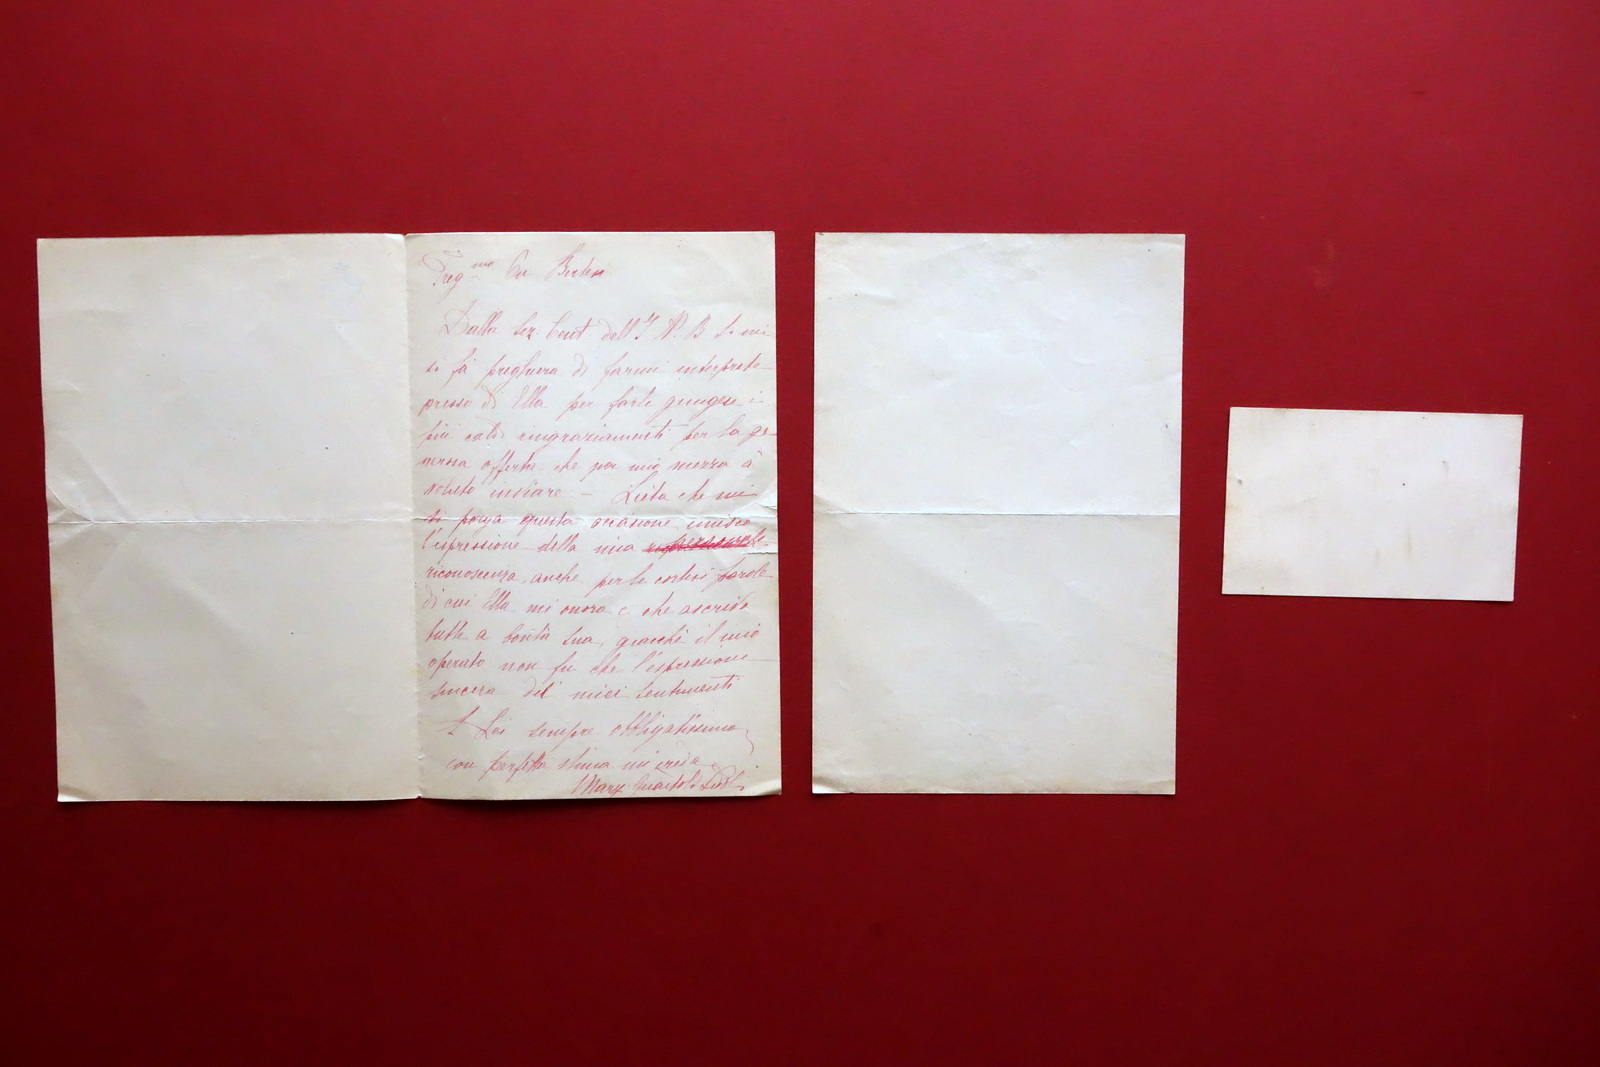 Preg.mo Cav Bertesi
Dalla Sez. Cent dell' I P. B S. mi
si fà preghiera di farmi interprete
presso di Ella per farle giungere i
più caldi ringraziamenti per la ge-
nerosa offerta che per mio mezzo à
voluto inviare - Lieta che mi
si porga questa occasione unisco
l'espressione della mia
riconoscenza, anche per le cortesi parole
di cui Ella mi onora e che ascrivo
tutte a bontà sua, giacchè il mio
operato non fu che l'espressione
sincera dei miei sentimenti
A Lei sempre obbligatissima
con perfetta stima mi creda
Mary